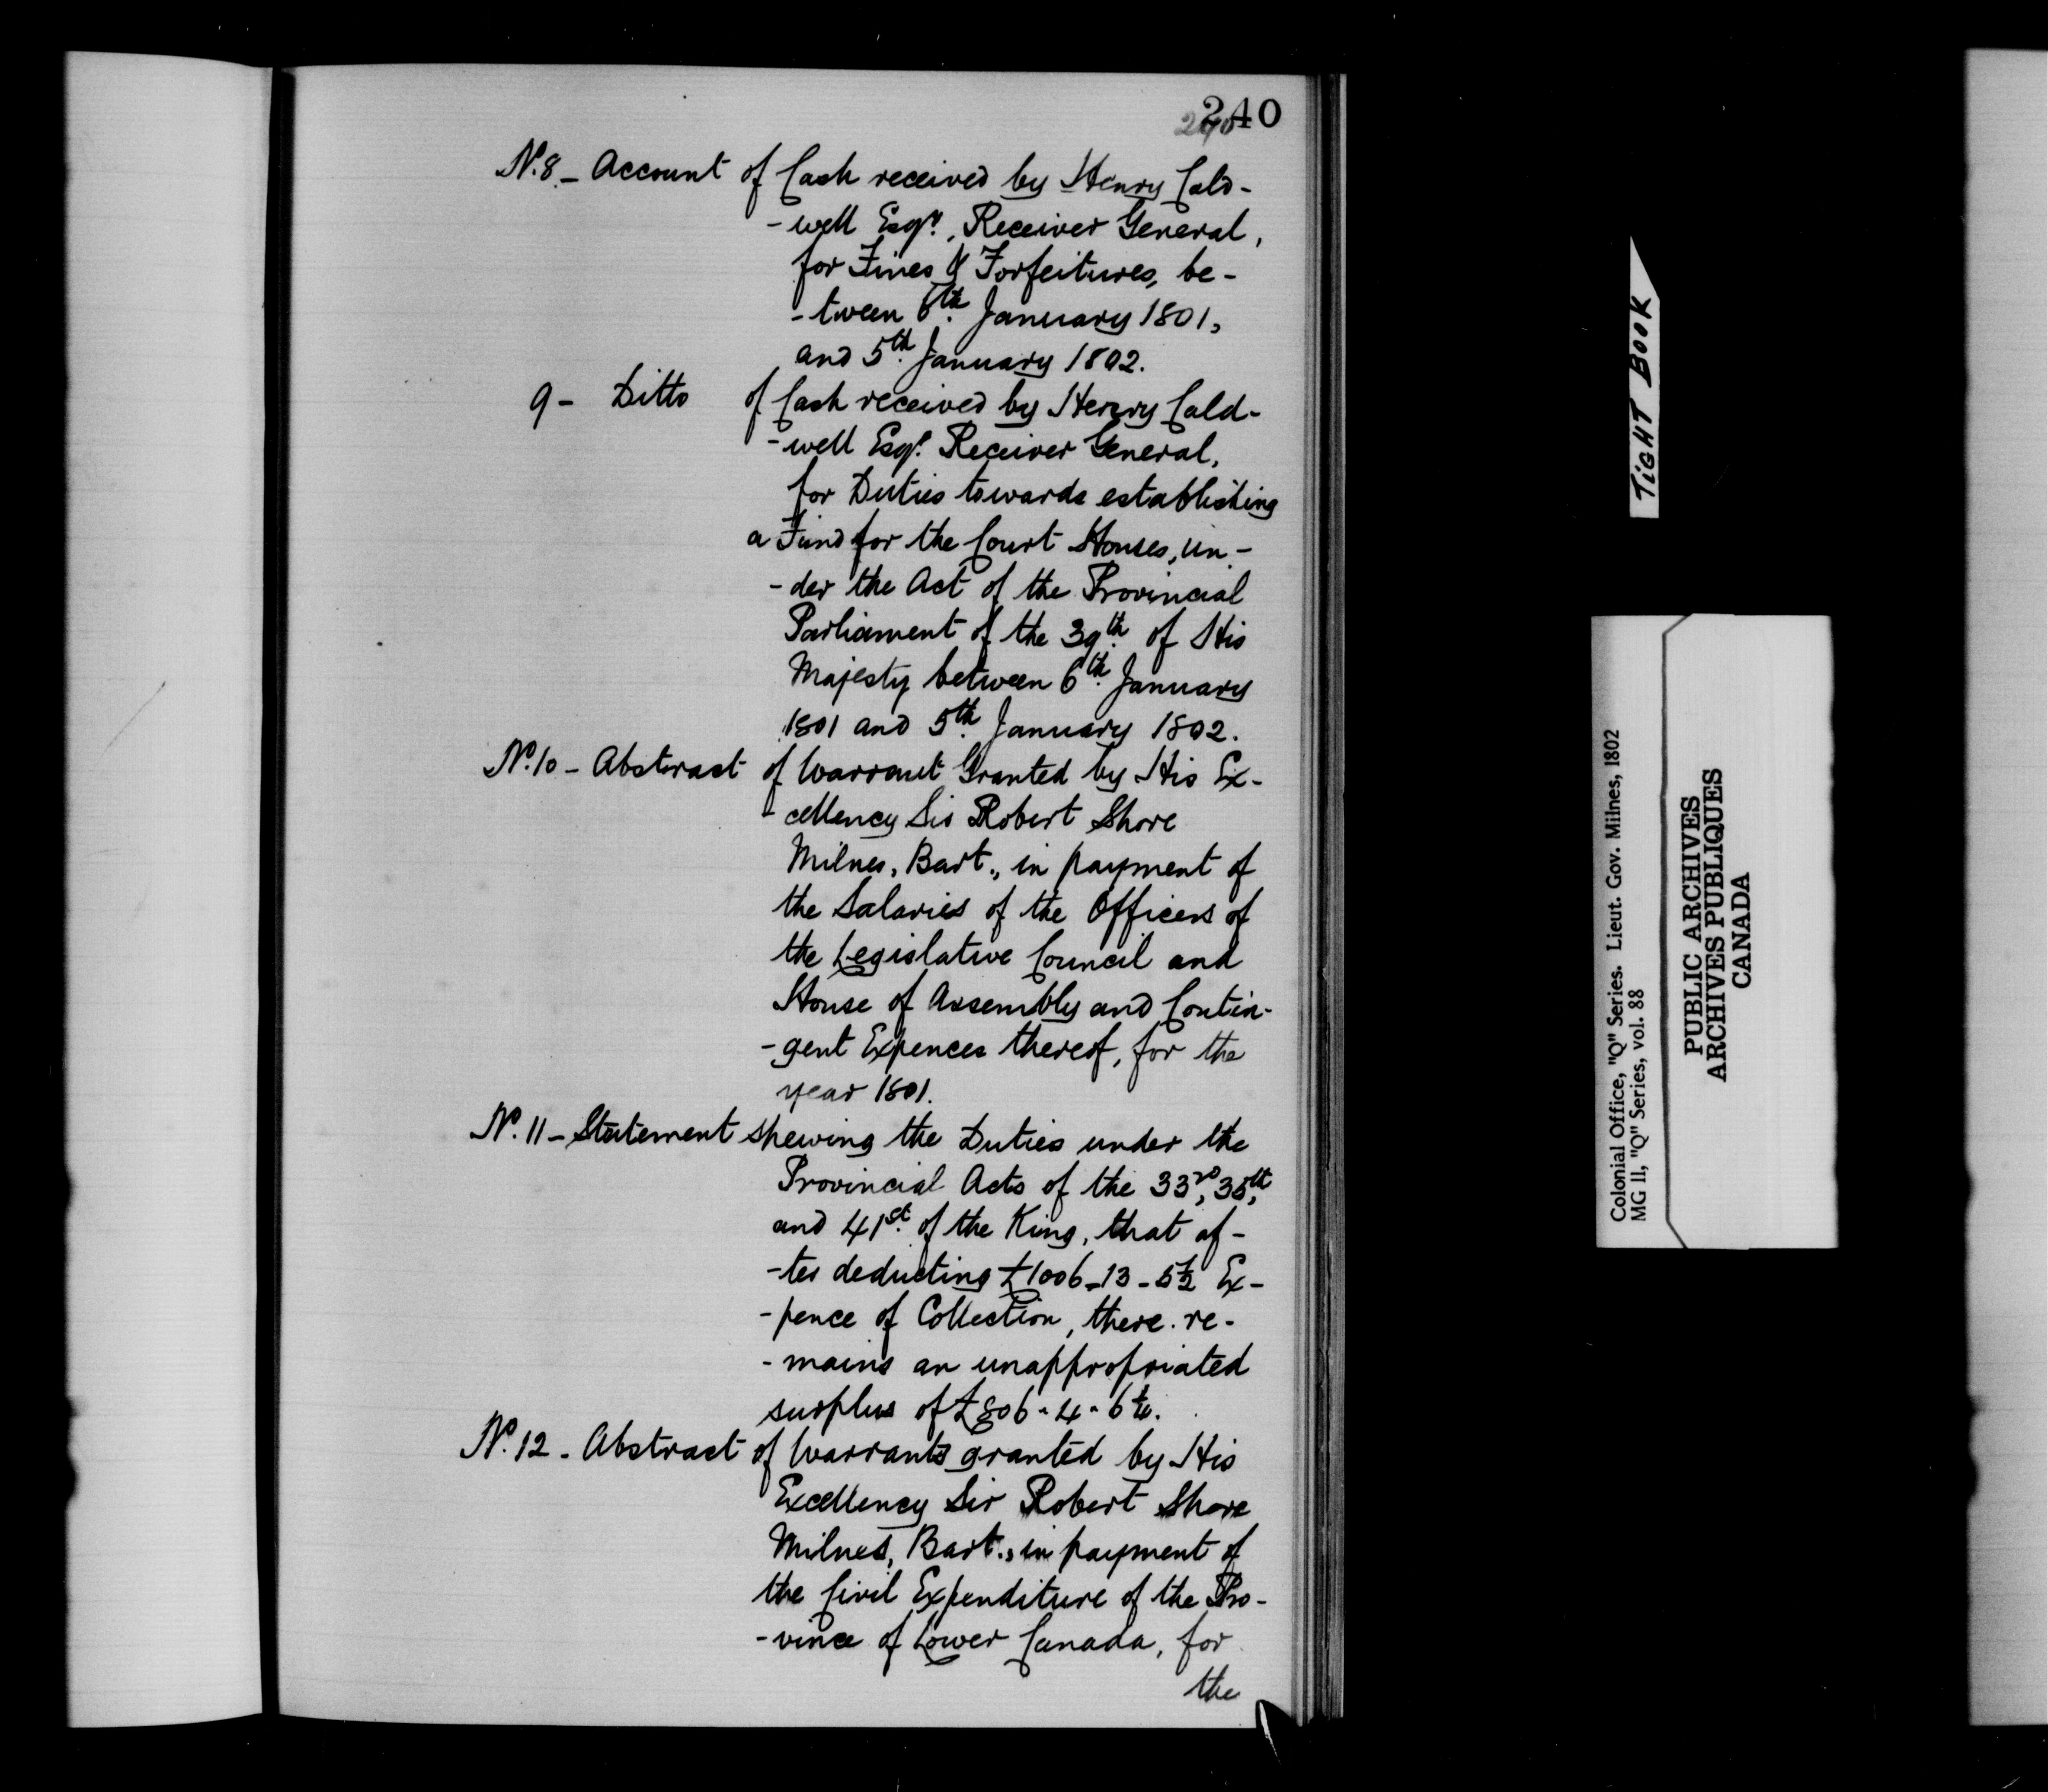 240
240
No. 8 - Account of Cash received by Henry Cald-
-well Esqr., Receiver General,
for Fines & Forfeitures, be-
-tween 6th. January 1801,
and 5th. January 1802.
9 - Ditto of Cash received by Henry Cald-
-well Esqr. Receiver General,
for Duties towards establishing
a Fund for the Court Houses, un-
-der the Act of the Provincial
Parliament of the 39th. of His
Majesty between 6th. January
1801 and 5th. January 1802.
No. 10 - Abstract of Warrant Granted by His Ex-
-cellency Sir Robert Shore
Milnes, Bart., in payment of
the Salaries of the Officers of
the Legislative Council and
House of Assembly and Contin-
-gent Expences thereof, for the
year 1801.
No. 11 - Statement shewing the Duties under the
Provincial Acts of the 33rd, 35th,
and 41st. of the King, that af-
-ter deducting £1006-13-5½ Ex-
-pence of Collection, there re-
-mains an unappropriated
surplus of £806-4-6¼.
No. 12 - Abstract of Warrants granted by His
Excellency Sir Robert Shore
Milnes, Bart., in payment of
the Civil Expenditure of the Pro-
-vince of Lower Canada, for
the
TIGHT BOOK
Colonial Office, "Q" Series. Lieut. Gov. Milnes, 1802
MG 11, "Q" Series, vol. 88
PUBLIC ARCHIVES
ARCHIVES PUBLIQUES
CANADA